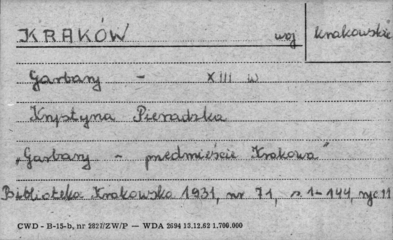 KRAKÓW woj krakowskie
Garbary - XIII w
Krystyna Pieradzka
"Garbary - przedmieście Krakowa"
Biblioteka Krakowska 1931, nr 71, s. 1-144, ryc 11
CWD - B-15-b, nr 2827/ZW/P — WDA 2694 13.12.62 1.700.000